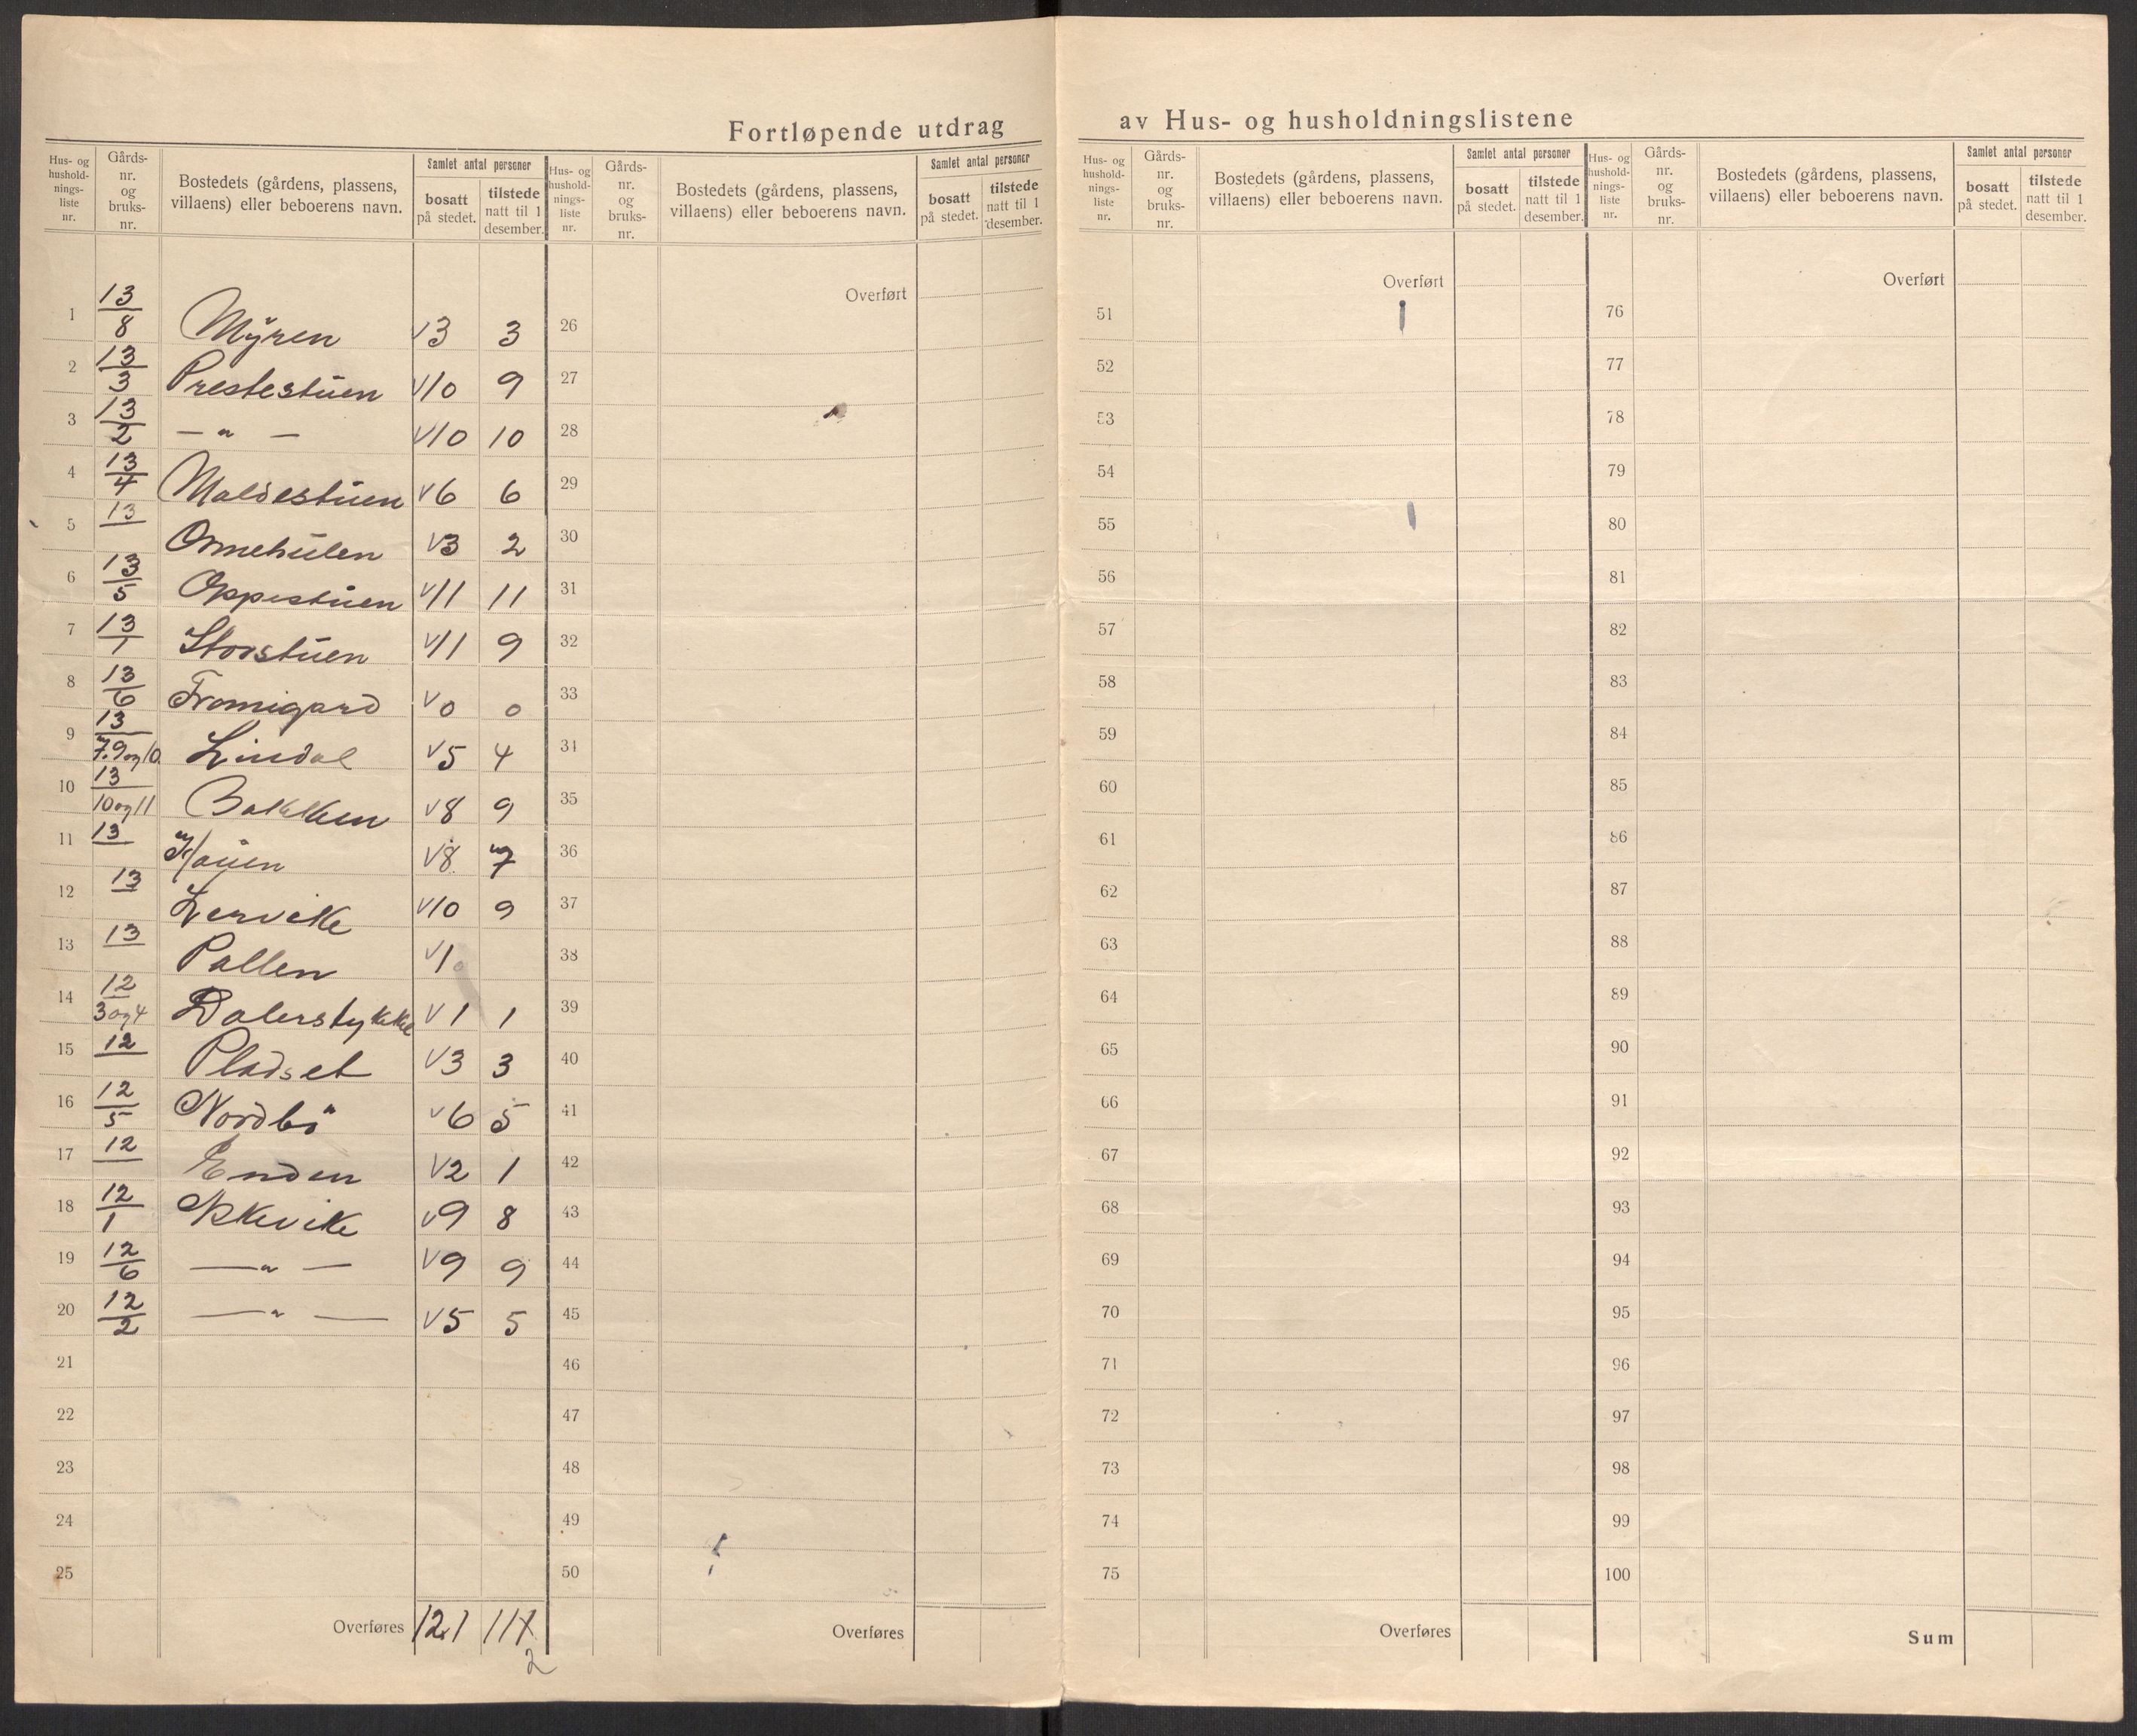 Fortløpende utdrag av Hus- og husholdningslistene
Hus- og hushold- nings- liste nr. | Gårds- nr. og bruks- nr. | Bostedets (gårdens, plassens, villaens) eller beboerens navn. | Samlet antal personer | bosatt på stedet. | tilstede natt til 1 desember.
1 13/8 Myren v3 3
2 13/3 Prestestuen v10 9
3 13/2 — " — v10 10
4 13/4 Maldestuen v6 6
5 13 Ormehulen v3 2
6 13/5 Oppestuen v11 11
7 13/1 Storstuen v11 9
8 13/6 Fromigard v0 0
9 13/7.9og10 Lindal v5 4
10 13/10og11 Bakkken v8 9
11 13 Hauen v8 7
12 13 Lervike v10 9
13 13 Pallen v1
14 12/3og4 Dalerstykke v1 1
15 12 Pladset v3 3
16 12/5 Nordbö v6 5
17 12 Enden v2 1
18 12/1 v9 8
19 12/6 — " — v9 9
20 12/2 — " — v5 5
21
22
23
24
25
Overføres 121 111
2
Hus- og hushold- nings- liste nr. | Gårds- nr. og bruks- nr. | Bostedets (gårdens, plassens, villaens) eller beboerens navn. | Samlet antal personer | bosatt på stedet. | tilstede natt til 1 desember.
Overført
26
27
28
29
30
31
32
33
34
35
36
37
38
39
40
41
42
43
44
45
46
47
48
49
50
Overføres
Hus- og hushold- nings- liste nr. | Gårds- nr. og bruks- nr. | Bostedets (gårdens, plassens, villaens) eller beboerens navn. | Samlet antal personer | bosatt på stedet. | tilstede natt til 1 desember.
Overført
51
52
53
54
55
56
57
58
59
60
61
62
63
64
65
66
67
68
69
70
71
72
73
74
75
Overføres
Hus- og hushold- nings- liste nr. | Gårds- nr. og bruks- nr. | Bostedets (gårdens, plassens, villaens) eller beboerens navn. | Samlet antal personer | bosatt på stedet. | tilstede natt til 1 desember.
Overført
76
77
78
79
80
81
82
83
84
85
86
87
88
89
90
91
92
93
94
95
96
97
98
99
100
Sum